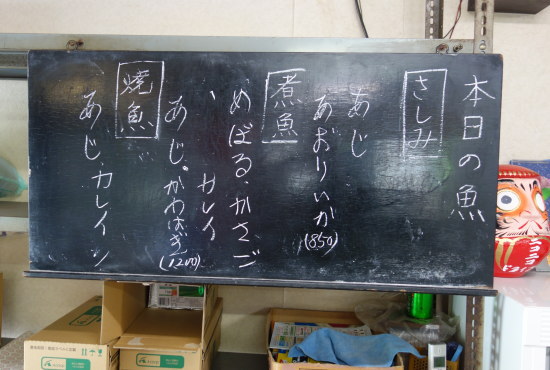 本日の魚
さしみ
あじ
あおりいか
(850)
煮魚
めばる、かさご
、カレイ
あじ。かわはぎ
(1200)
焼魚
あじ、カレイ